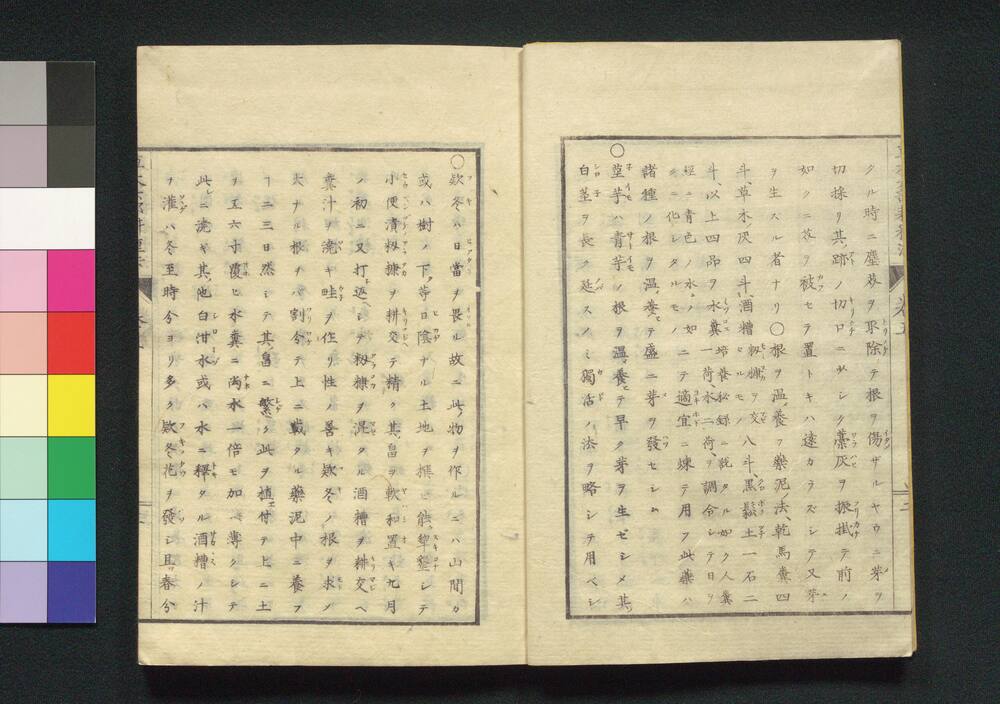 クル時ニ塵芥ヲ取除テ根ヲ傷ザルヤウニ芽ヲ
切採リ其跡ノ切口ニ少シク藁灰ヲ振掛テ前ノ
如クニ苞ヲ被セテ置トキハ遠カラズシテ又芽
ヲ生スル者ナリ〇根ヲ温養フ藥泥ノ法、乾馬糞四
斗、草木灰四斗、酒糟粉糠ヲ交ヒルモノ八斗、黒鬆土一石二
斗、以上四品ヲ水糞培養秘録ニ説タル如ク人糞一荷水二荷ヲ調合シテ日ヲ
経ニ青色ノ水ノ如クニ化レタルモノニテ適宜ニ煉テ用フ此藥ハ
諸種ノ根ヲ温養テ盛ニ芽ヲ發セシム
〇莖芋ハ青芋ノ根ヲ温養テ早ク芽ヲ生ゼシメ其
白莖ヲ長ク延スノミ獨活ノ法ヲ略シテ用ベシ
〇欵冬ハ日當ヲ畏ル故ニ此物ヲ作ルニハ山間カ
或ハ樹ノ下等日陰ナル土地ヲ撰ビ能犂墾シテ
小便漬粉糠ヲ耕交テ精ク其畠ヲ軟和置キ九月
ノ初ニ又打返シテ粉糠ヲ混タル酒糟ヲ耕交ヘ
糞汁ヲ澆ギ畦ヲ作リ性ノ善キ欵冬ノ根ヲ求メ
大ナル根ヲバ割分テ上ニ載タル藥泥中ニ養フ
丁二三日然シテ其畠ニ繁ク此ヲ植付テ上ニ土
ヲ五六寸覆ヒ水糞ニ尚水一倍モ加ヘ薄クシテ
此レニ澆ギ其他白泔水或ハ水ニ釋タル酒糟ノ汁
ヲ灌ハ冬至時分ヨリ多ク欵冬花ヲ發シ且ツ春分